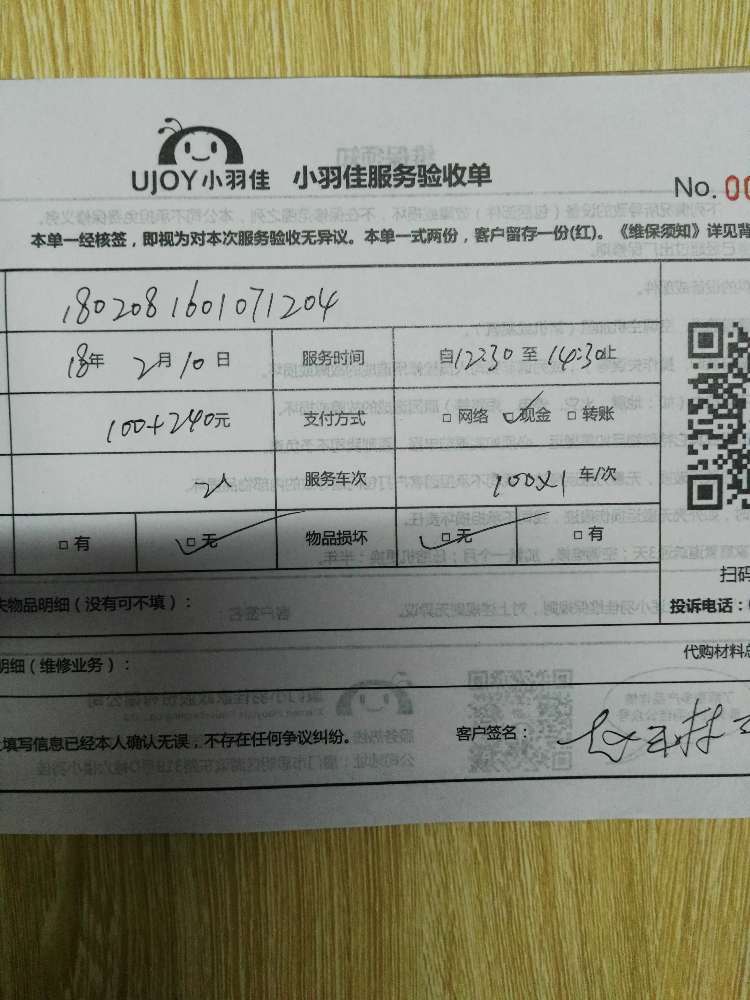 UJOY小羽佳 小羽佳服务验收单
No. 00
本单一经核签，即视为对本次服务验收无异议。本单一式两份，客户留存一份(红)。《维保须知》详见背
1802081601071204
18年 2月10日 服务时间 自12:30至14:30止
100+240元 支付方式 □ 网络 □ 现金 □ 转账
2人 服务车次 100×1 车/次
□ 有 □ 无 物品损坏 □ 无 □ 有
扫码
失物品明细（没有可不填）： 投诉电话：
明细（维修业务）： 代购材料总
填写信息已经本人确认无误，不存在任何争议纠纷。 客户签名：